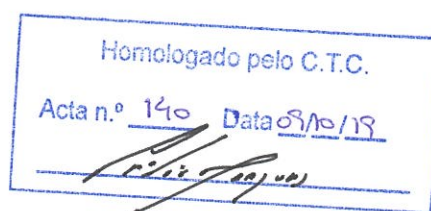 Homologado pelo C.T.C.
Acta n.º 140 Data 09/10/19